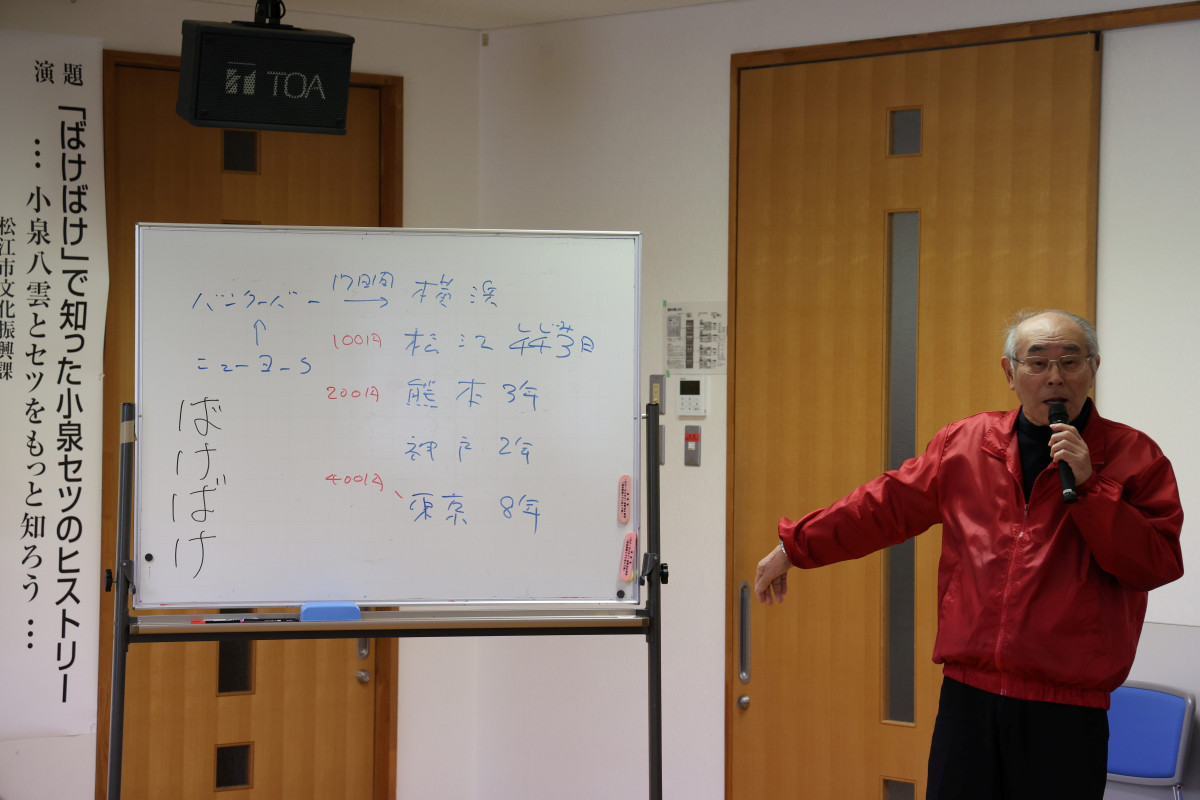 演題
「ばけばけ」で知った小泉セツのヒストリー
… 小泉八雲とセツをもっと知ろう …
松江市文化振興課
TOA
バンクーバー 17日間 → 横浜
↑
ニューヨーク
100円 松江
200円 熊本 3年
神戸 2年
400円、東京 8年
ばけばけ